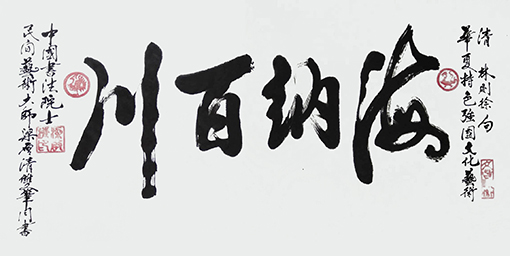 清 林则徐句
华夏特色强国文化艺术
海纳百川
中国书法院士
民间艺术大师梁
清双笔同书